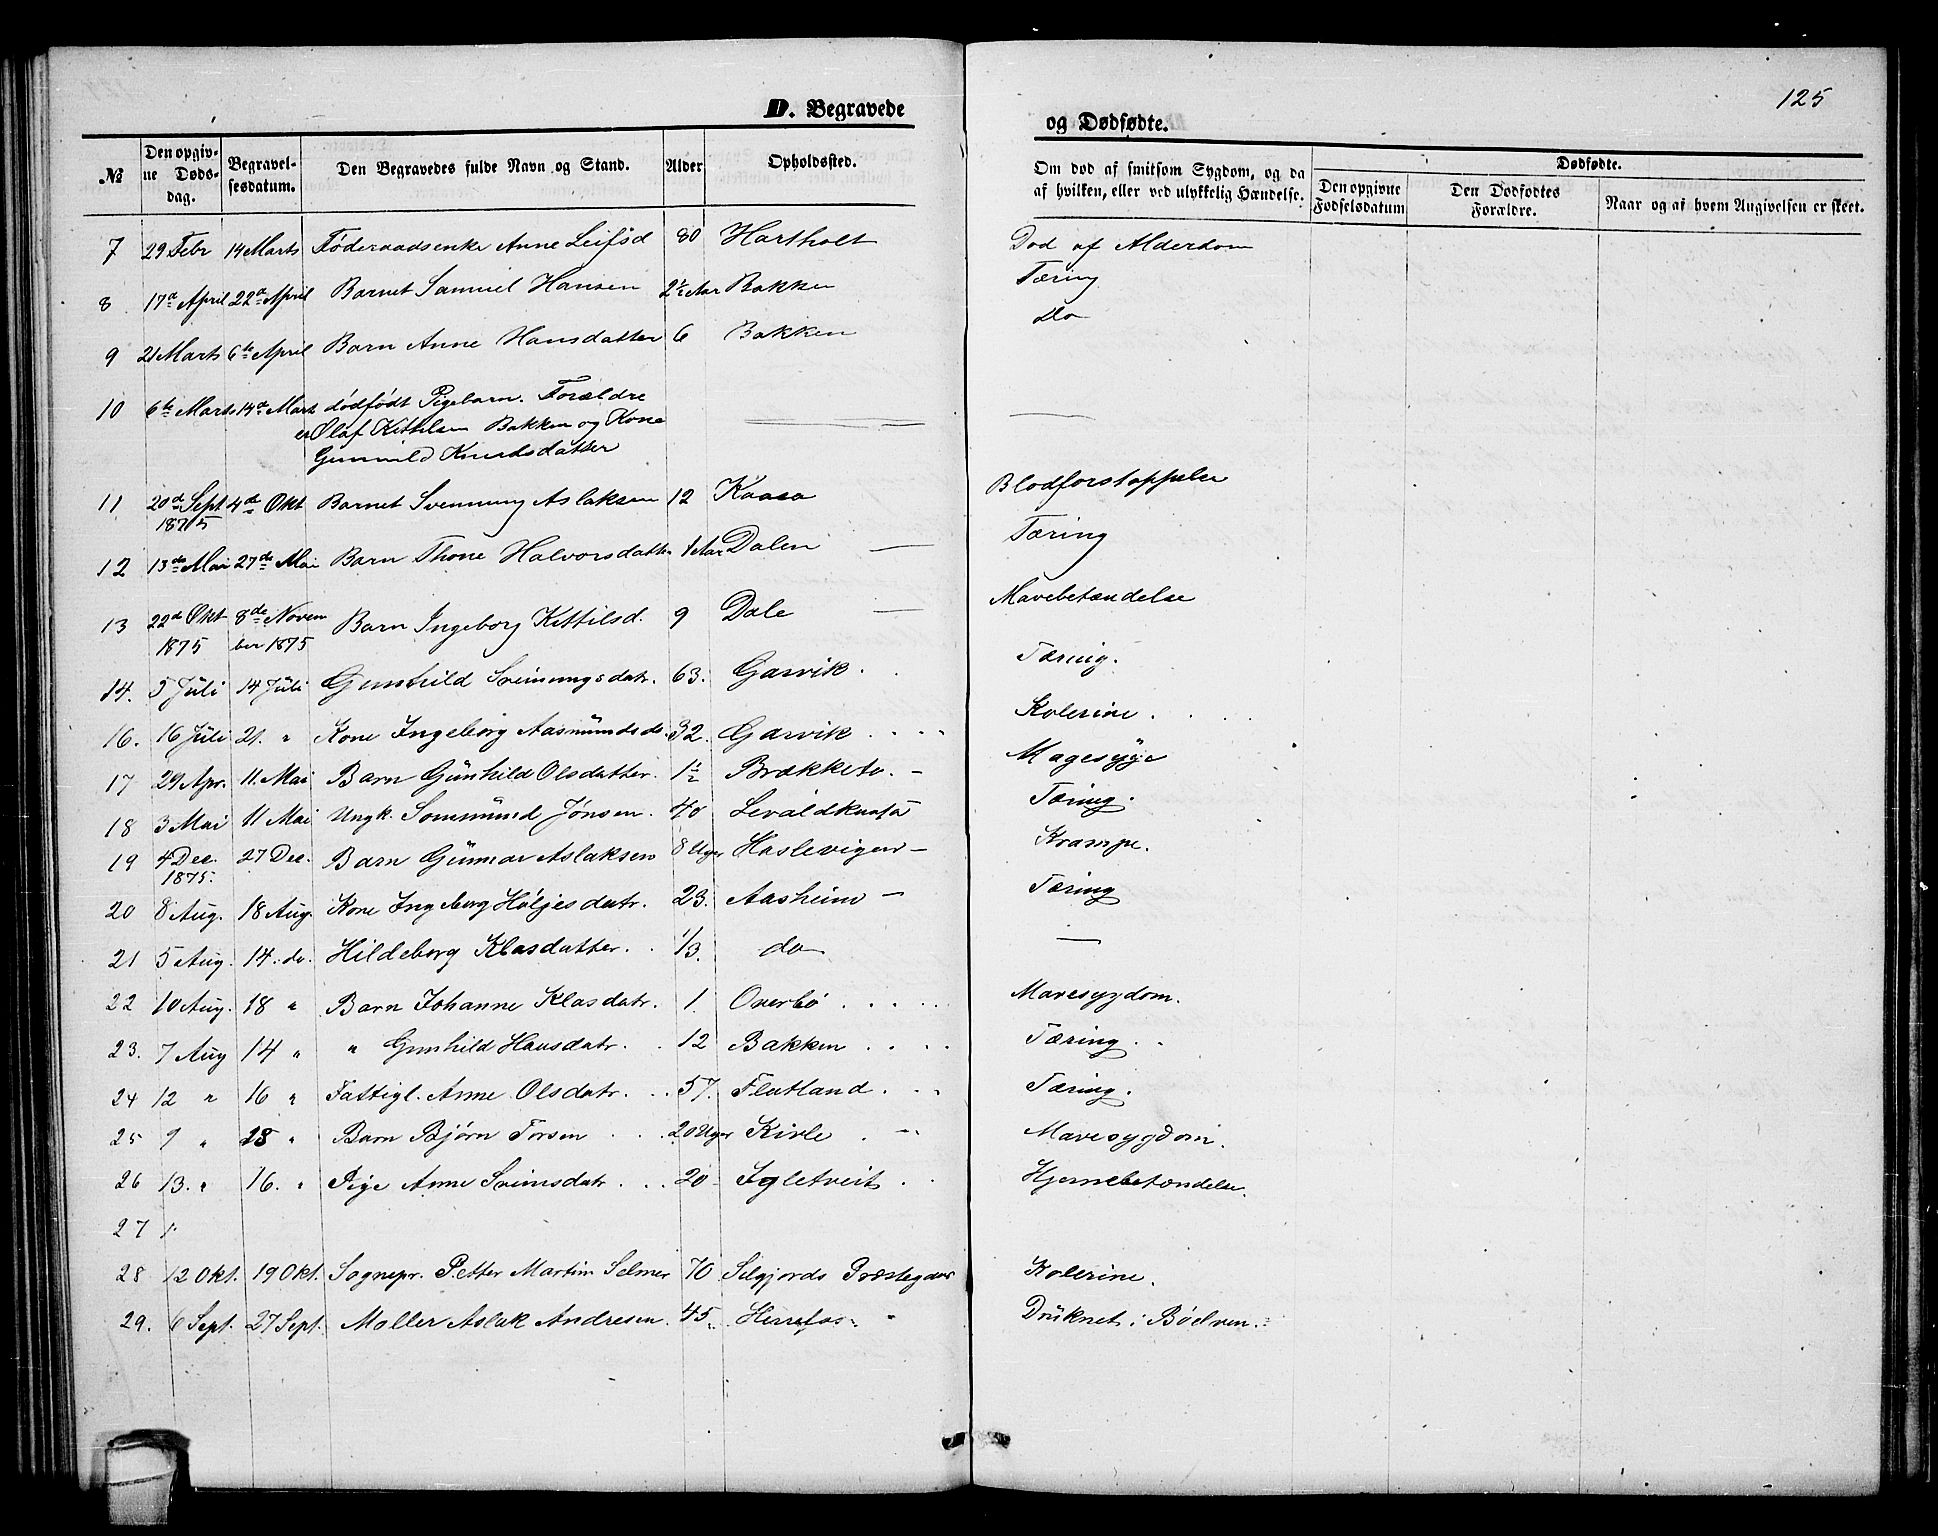 125
D. Begravede
og Dødfødte.
№ Den opgivne Dødsdag. Begravelsesdatum. Den Begravedes fulde Navn og Stand. Alder Opholdssted. Om død af smitsom Sygdom, og da af hvilken, eller ved ulykkelig Hændelse. Dødfødte.
Den opgivne Fødselsdatum Den Dødfødtes Forældre. Naar og af hvem Angivelsen er skeet.
7 29 Febr 14 Marts Føderaadsenke Anne Leifsd 80 Hartholt Død af Alderdom
8 17de April 22de April Barnet Samuel Hansen 2½ Aar Bakken Tæring
9 21 Marts 6te April Barn Anne Hansdatter 6 Bakken do
10 6te Marts 14de Mart dødfødt Pigebarn. Forældre
er Olaf Kittilsen Bakken og Kone
Gunnild Knudsdatter
11 20de Sept 1875 4de Okt Barnet Svennung Aslaksen 12 Kaasa Blodforstoppelse
12 13de Mai 27de Mai Barn Thone Halvorsdatter 1 Aar Dalen — Tæring
13 22de Okt 1875 8de November 1875 Barn Ingeborg Kittilsd. 9 Dale — Mavebetændelse
14. 5 Juli 14 Juli Gunhild Sveinungsdatr. 63. Garvik. Tæring.
16. 16 Juli 21. " Kone Ingeborg Aasmundsd. 32. Garvik Kolerine.
17 29 Apr. 11. Mai Barn Gunhild Olsdatter. 1½ Brækketo. — Magesyge
18 3 Mai 11 Mai Ungk. Sommund Jønsen. 40 Tæring.
19 4 Dec. 1875. 27 Dec. Barn Gunnar Aslaksen 8 Uger Haslevigen — Krampe.
20 8 Aug. 18 Aug. Kone Ingeborg Høljesdatr. 23. Aasheim — Tæring
21 5 Aug. 14. do. Hildeborg Klasdatter. 1/3. do —
22 10 Aug. 18 " Barn Johanne Klasdatr. 1. Overbø Mavesygdom.
23. 7 Aug 14 " " Gunhild Hansdatr. 12 Bakken Tæring.
24 12 " 16 " Fattigl. Anne Olsdatr. 57. Flatland Tæring.
25 9 " 28 " Barn Bjørn Torsen 20 Uger Kivle Mavesygdom.
26 13. " 16. " Pige Anne Sveinsdatr. 20 Igletveit Hjernebetændelse.
27 1
28 12 Okt. 19 Okt. Sognepr. Petter Martin Selmer 70 Silgjords Præstegaard Kolerine.
29. 6 Sept. 27 Sept. Møller Aslak Andresen. 45 Herrefos Druknet i Bøelven.